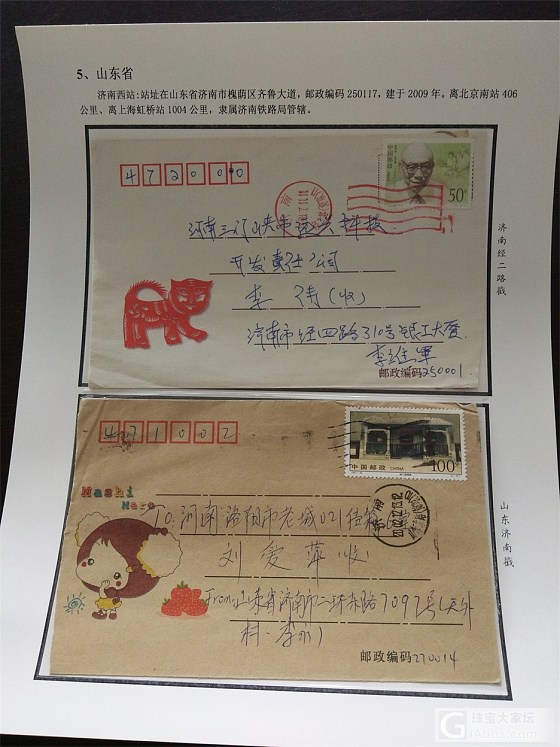 5、山东省
济南西站:站址在山东省济南市槐荫区齐鲁大道,邮政编码250117,建于2009年。离北京南站406
公里、离上海虹桥站1004公里,隶属济南铁路局管辖。
472000
中国邮政
50分
河南三门峡市
开发责任公司
李 涛(收)
济南市经四路310号银工大厦
李维军
邮政编码250001
济南经二路戳
471002
中国邮政 CHINA
100分
Mashi
Maro
To.河南洛阳市老城021信箱
刘 爱 萍(收)
From:山东省济南市二环东路7097号(天外
村·李
邮政编码270014
山东济南戳
珠宝大家坛
GJiaoto.com